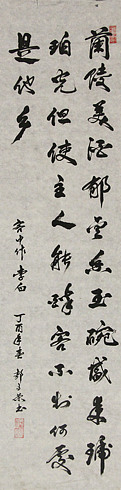 蘭陵美酒郁金香玉碗盛来琥
珀光但使主人能醉客不知何處
是他乡
客中作 李白
丁酉年春